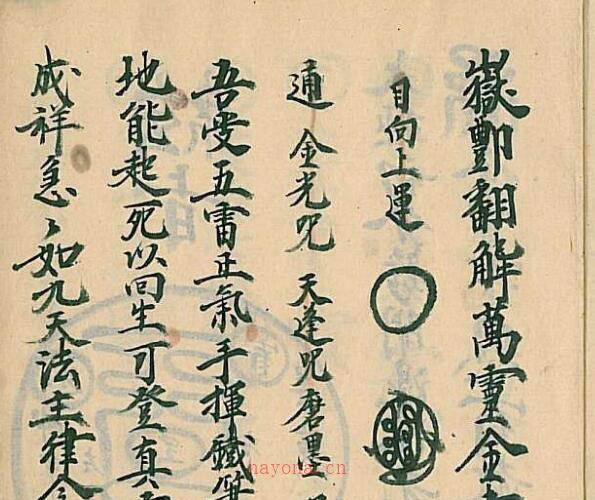 嶽酆翻解萬靈金
目向上運
通 金光咒 天逢咒磨墨
吾受五雷正氣手揮鐵筆
地能起死以回生可登真
成祥急〻如九天法主律令
nayona.cn